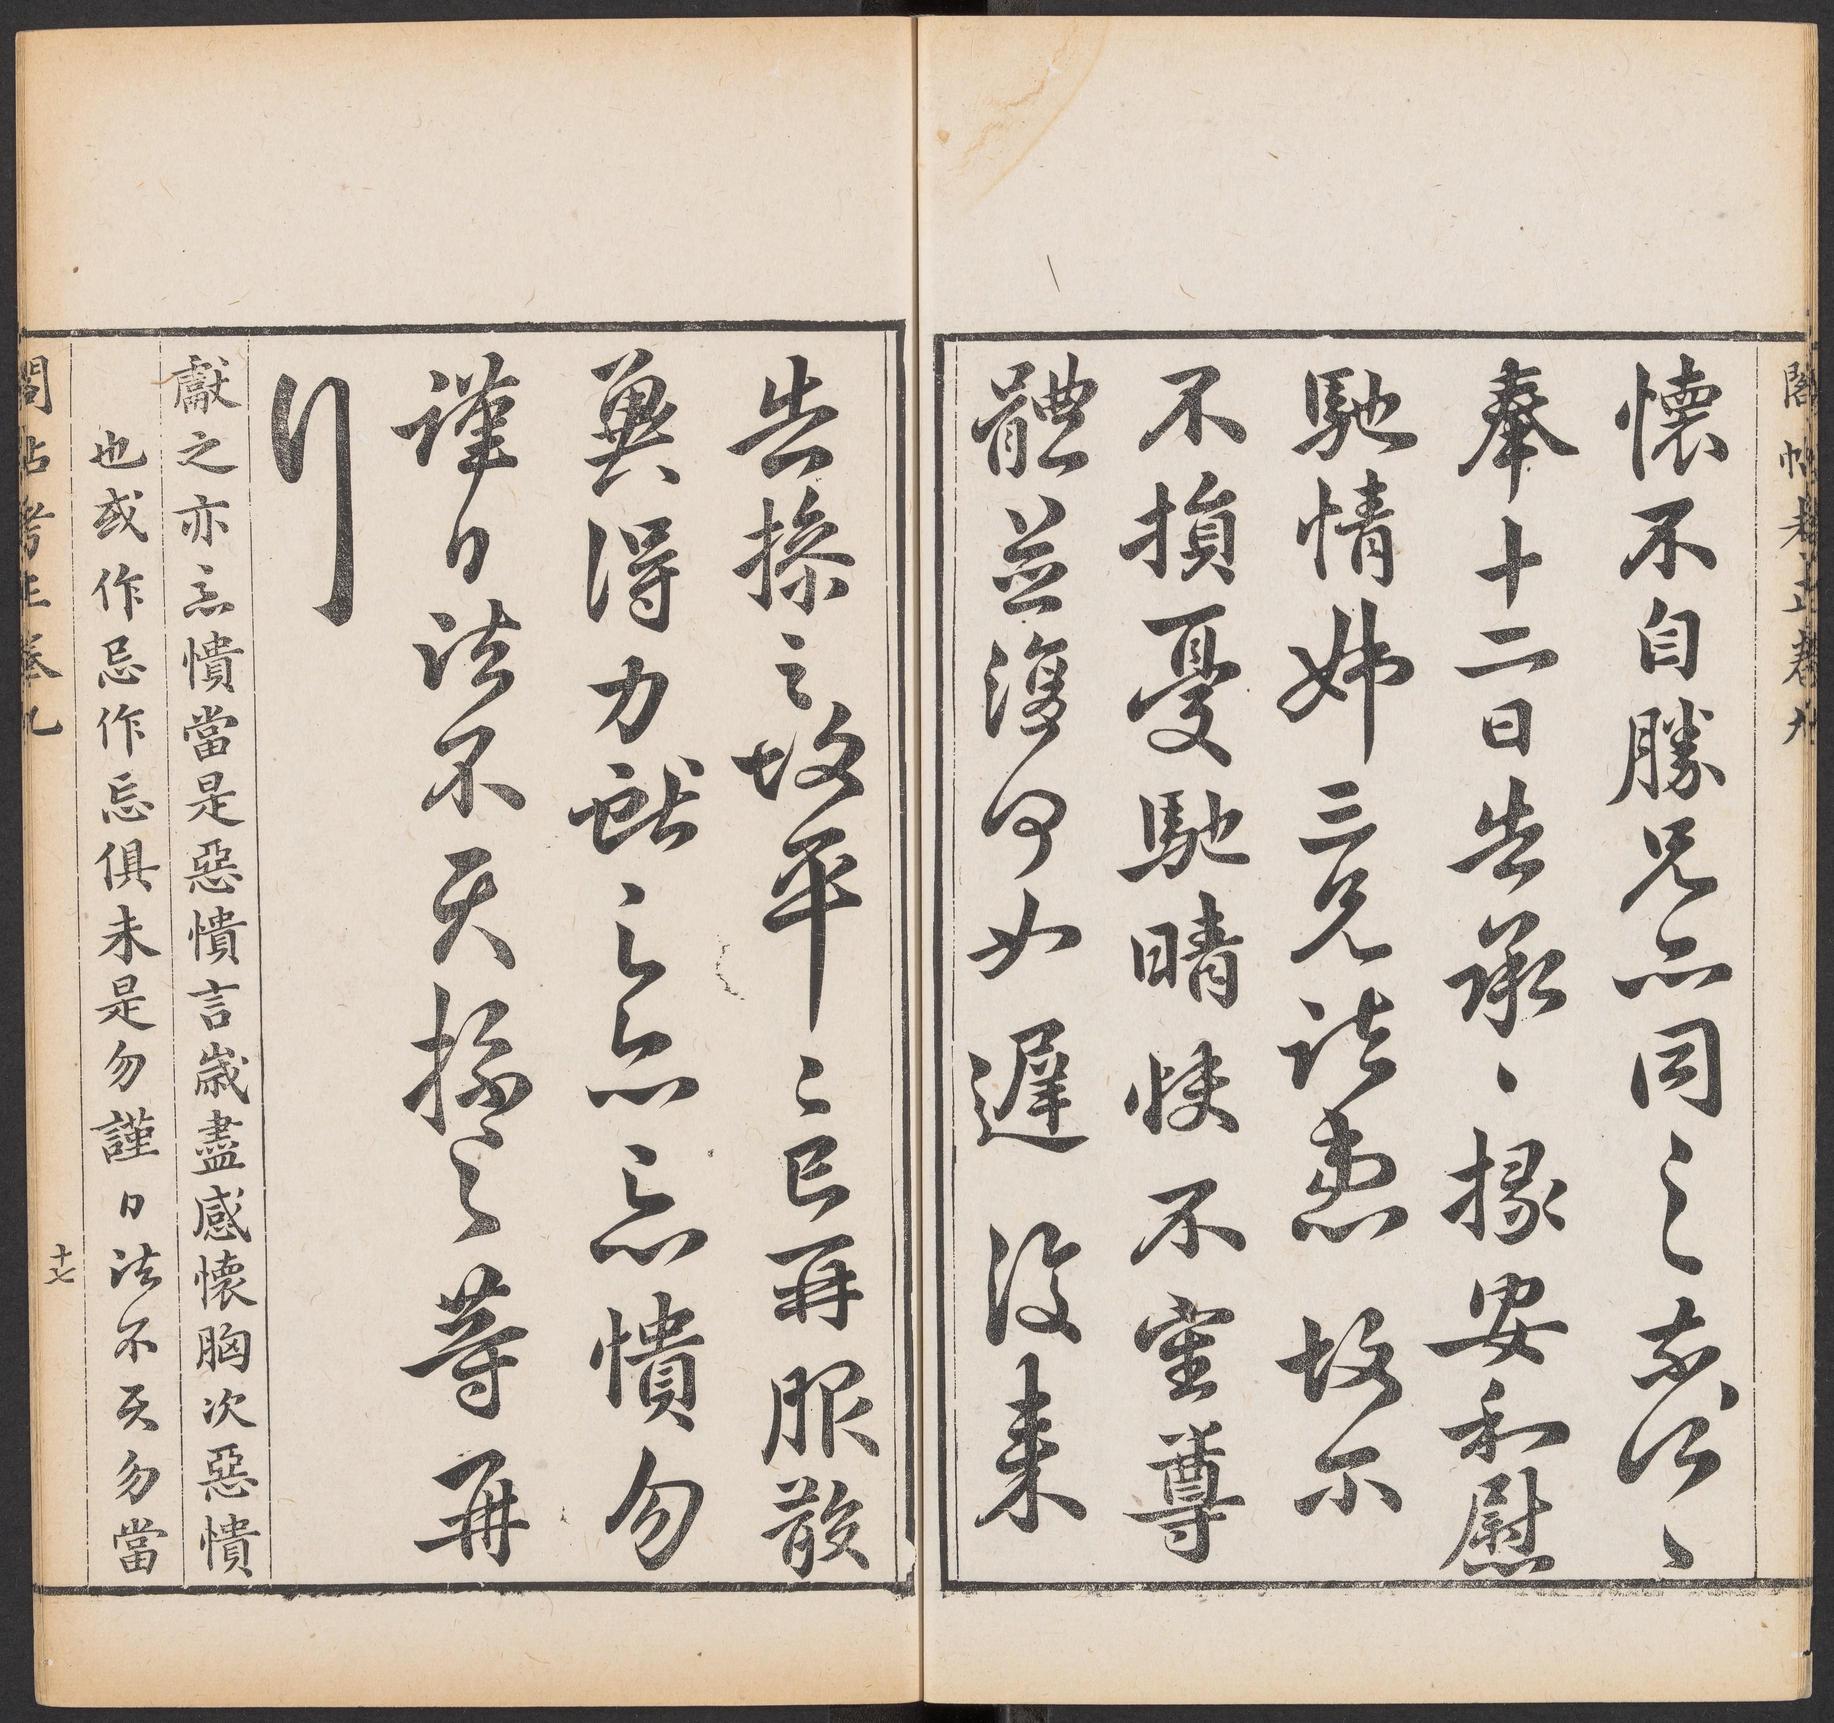 閣帖考正卷九
懷不自勝兄亦同之奈何〻
奉十二日告承〻掾安和慰
馳情姊三兄諸患故爾
不損憂馳晴快不審尊
體並復何如遲復來
告操之故平〻已再服散
冀得力獻之亦忘憒勿
謹日諸不具操之等再
行
獻之亦忘憒當是惡憒言歲盡感懷胸次惡憒
也或作忌作忘俱未是勿謹日諸不具勿當
閣帖考正卷九
十七